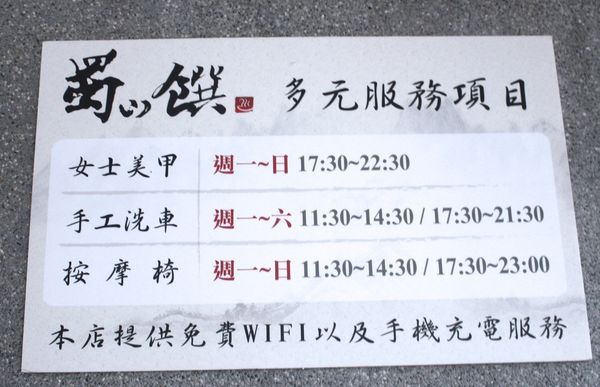 蜀山饌 多元服務項目
女士美甲 週一~日 17:30~22:30
手工洗車 週一~六 11:30~14:30 / 17:30~21:30
按摩椅 週一~日 11:30~14:30 / 17:30~23:00
本店提供免費WIFI以及手機充電服務